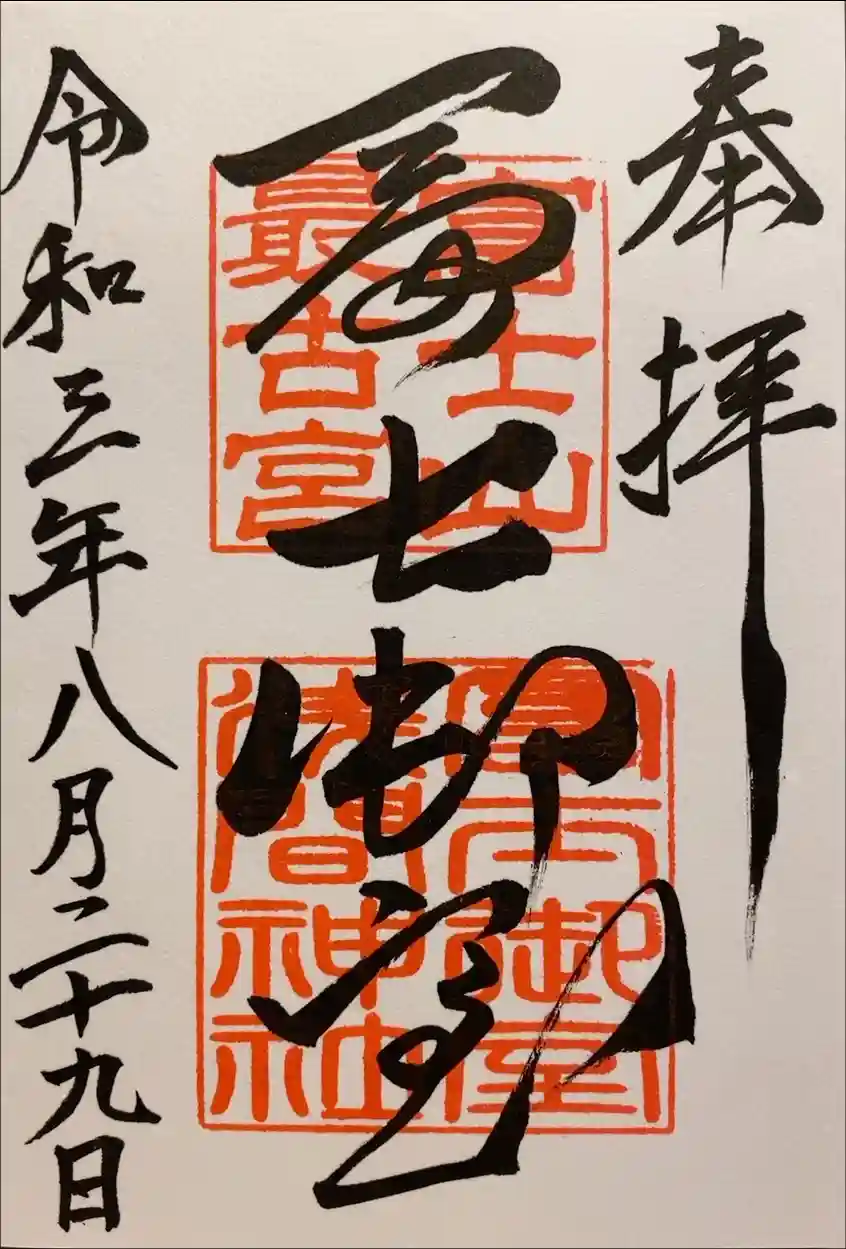 奉拝
冨士御室
冨士山
最古宮
冨士御室
浅間神社
令和三年八月二十九日